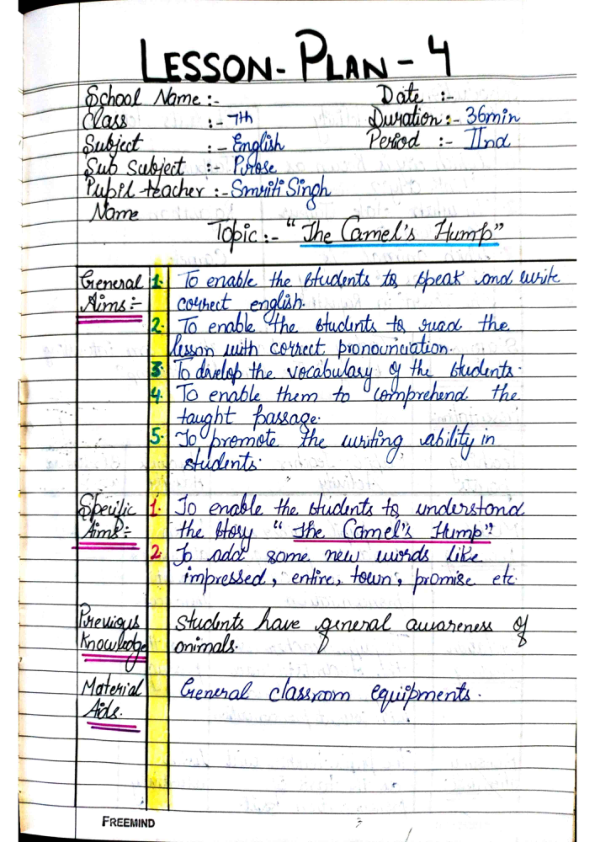 LESSON-PLAN-4
School Name :- Date :-
Class :- 7th Duration :- 36min
Subject :- English Period :- IInd
Sub Subject :- Prose
Pupil teacher :- Smriti Singh
Name
Topic :- "The Camel's Hump"
General 1. To enable the students to speak and write
Aims:= correct english.
2. To enable the students to read the
lesson with correct pronounciation.
3. To develop the vocabulary of the students.
4. To enable them to comprehend the
taught passage.
5. To promote the writing ability in
students.
Specific 1. To enable the students to understand
Aims:= the story "The Camel's Hump".
2. To add some new words like
impressed, entire, town, promise etc
Previous Students have general awareness of
Knowledge animals.
Material General classroom equipments.
Aids.
FREEMIND